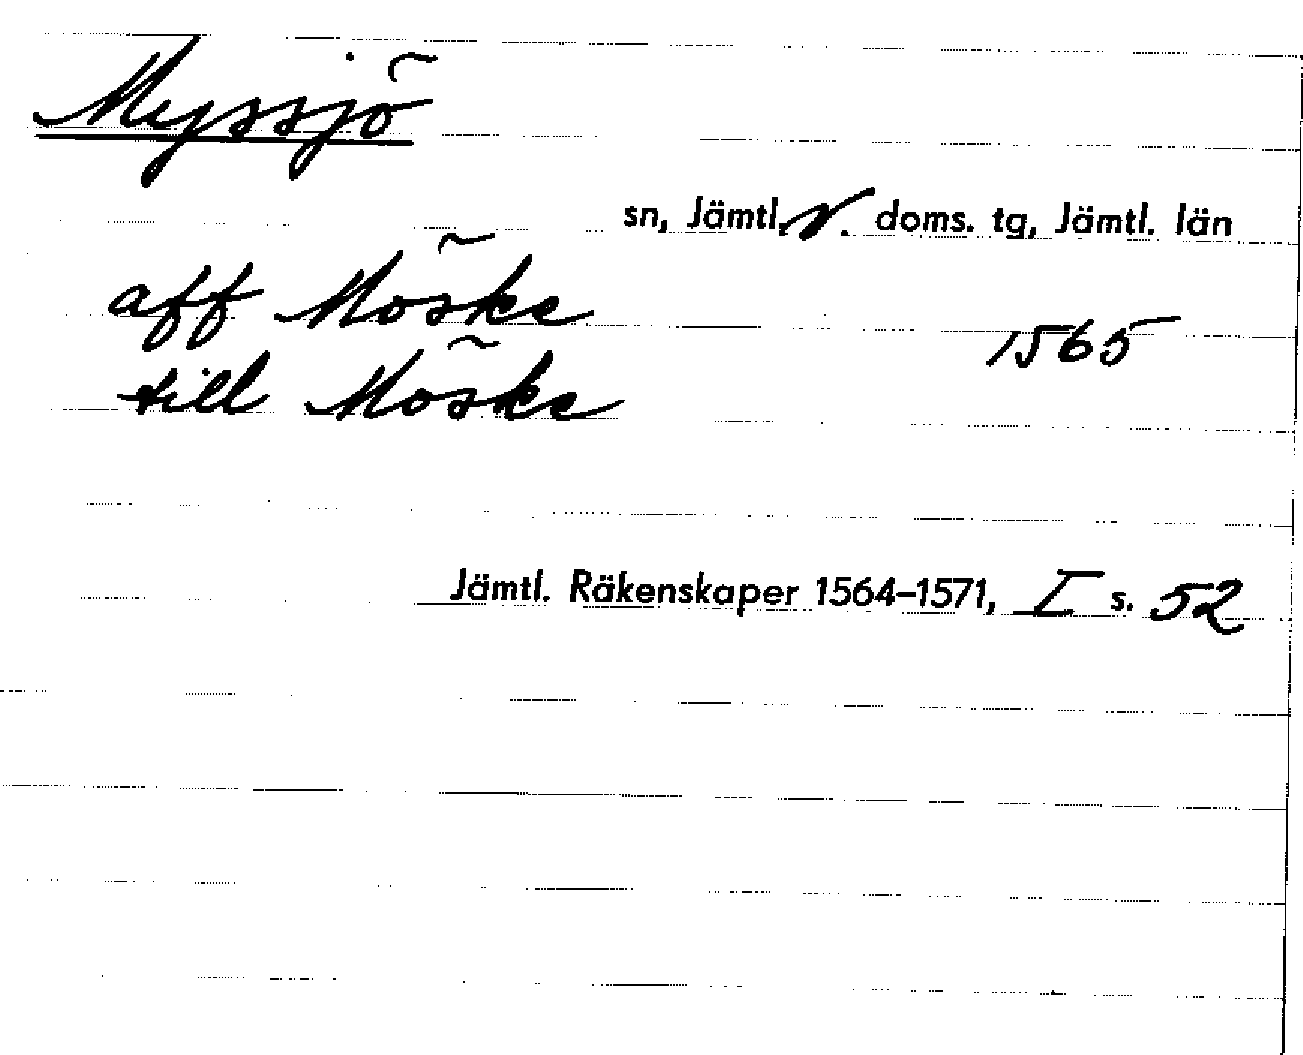 Myssjö
sn, Jämtl. V. doms. tg, Jämtl. län
aff Möske
1565
till Möske
Jämtl. Räkenskaper 1564–1571, I s. 52